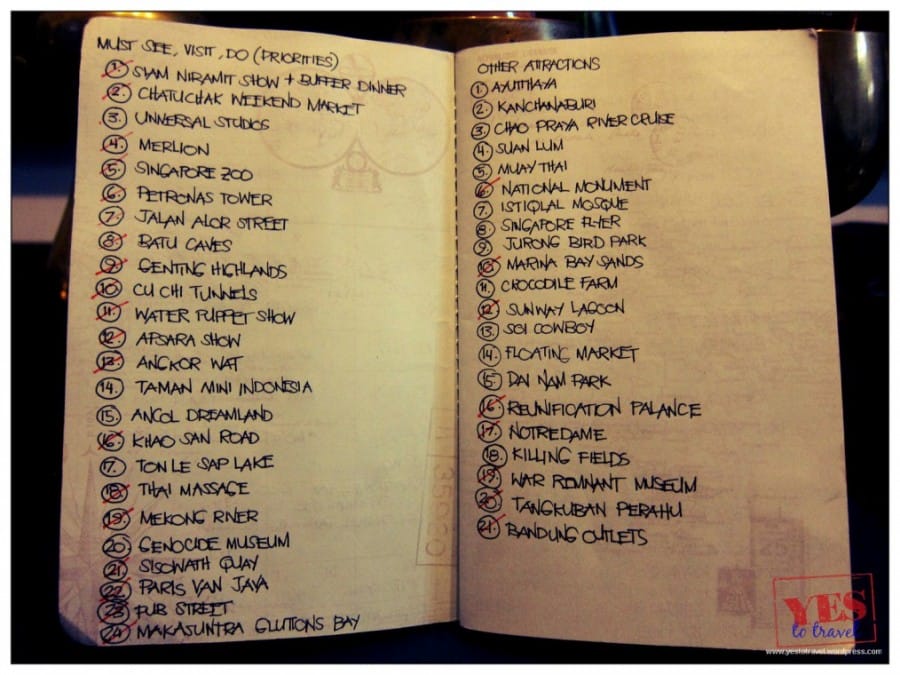 MUST SEE, VISIT, DO (PRIORITIES)
1. SIAM NIRAMIT SHOW + BUFFER DINNER
2. CHATUCHAK WEEKEND MARKET
3. UNIVERSAL STUDIOS
4. MERLION
5. SINGAPORE ZOO
6. PETRONAS TOWER
7. JALAN ALOR STREET
8. BATU CAVES
9. GENTING HIGHLANDS
10. CU CHI TUNNELS
11. WATER PUPPET SHOW
12. APSARA SHOW
13. ANGKOR WAT
14. TAMAN MINI INDONESIA
15. ANCOL DREAMLAND
16. KHAO SAN ROAD
17. TONLE SAP LAKE
18. THAI MASSAGE
19. MEKONG RIVER
20. GENOCIDE MUSEUM
21. SISOWATH QUAY
22. PARIS VAN JAVA
23. PUB STREET
24. MAKASUNTRA GLUTTONS BAY
OTHER ATTRACTIONS
1. AYUTTHAYA
2. KANCHANABURI
3. CHAO PRAYA RIVER CRUISE
4. SUAN LUM
5. MUAY THAI
6. NATIONAL MONUMENT
7. ISTIQLAL MOSQUE
8. SINGAPORE FLYER
9. JURONG BIRD PARK
10. MARINA BAY SANDS
11. CROCODILE FARM
12. SUNWAY LAGOON
13. SOI COWBOY
14. FLOATING MARKET
15. DAI NAM PARK
16. REUNIFICATION PALANCE
17. NOTREDAME
18. KILLING FIELDS
19. WAR REMNANT MUSEUM
20. TANGKUBAN PERAHU
21. BANDUNG OUTLETS
YES
to travel
www.yestotravel.wordpress.com